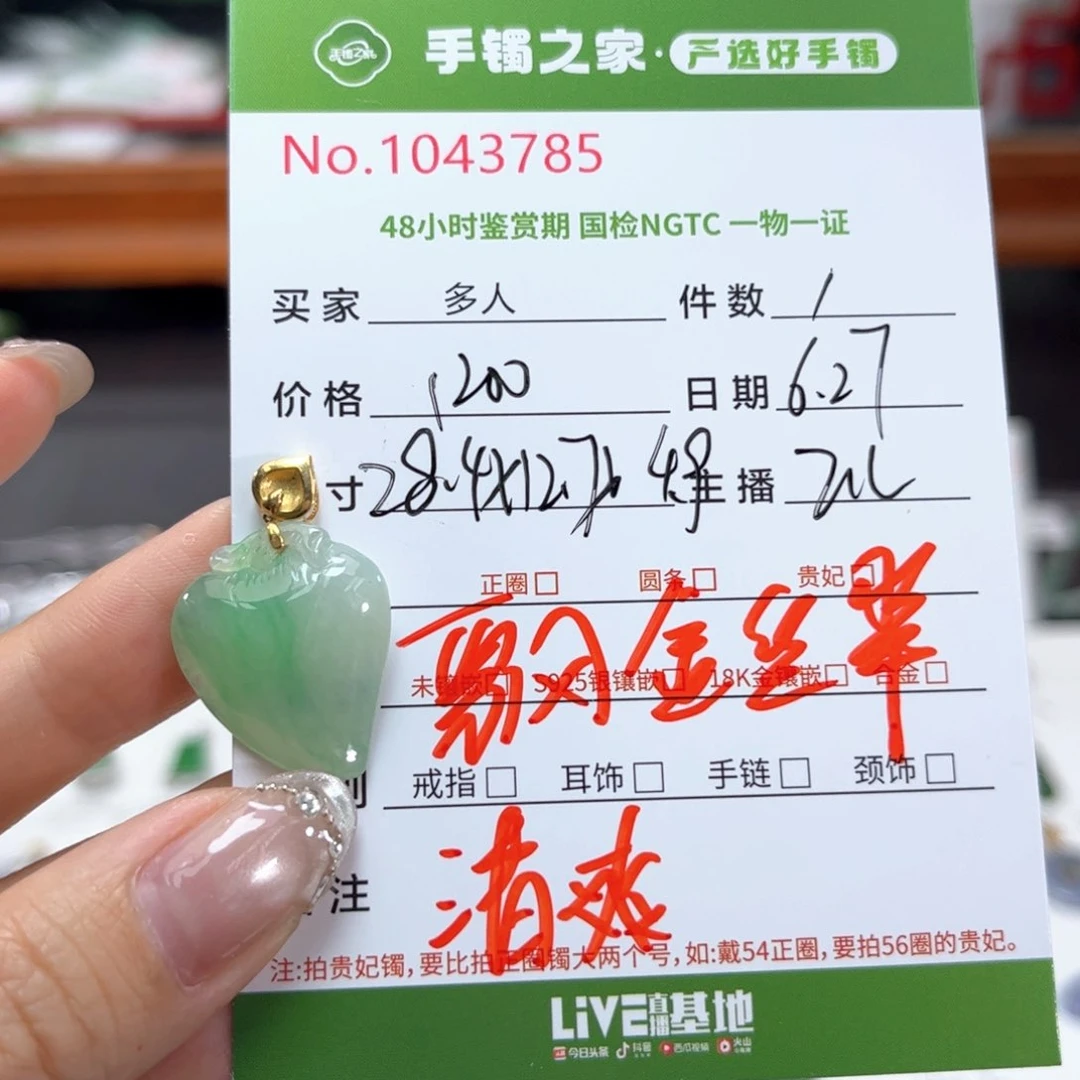 手镯之家·严选好手镯
No.1043785
48小时鉴赏期 国检NGTC 一物一证
买家 多人 件数 1
价格 1200 日期 6.27
寸 28.4X12.7X4.8 主播
正圈□ 圆条□ 贵妃□
金丝翠
未镶嵌□ S925银镶嵌□ 18K金镶嵌□ 合金□
戒指□ 耳饰□ 手链□ 颈饰□
注 清爽
注:拍贵妃镯,要比拍正圈镯大两个号,如:戴54正圈,要拍56圈的贵妃。
LiVE直播基地
今日头条 抖音 西瓜视频 火山